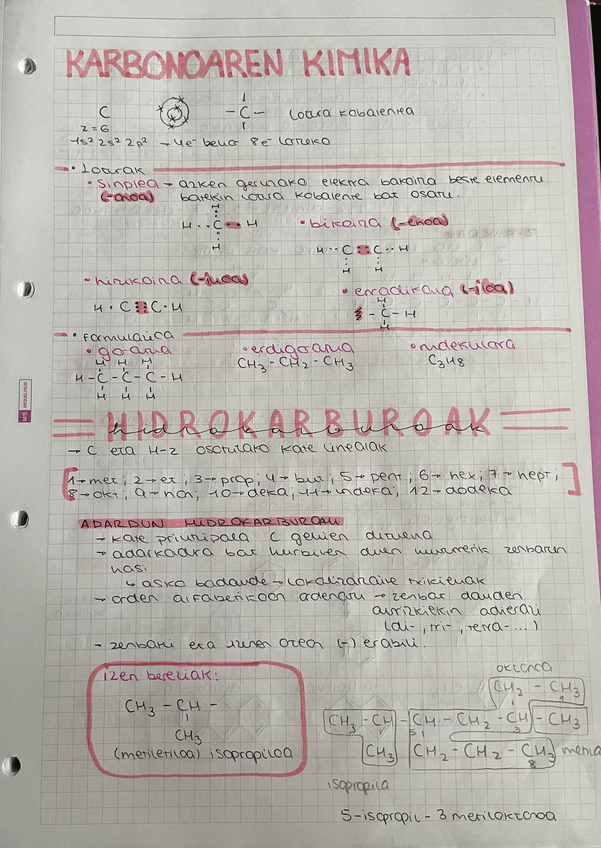 KARBONOAREN KIMIKA
C
-C- Lotura kobalentea
z=6
1s² 2s² 2p² → 4e⁻ behar 8e⁻ lortzeko
• Loturak
• Sinplea → azken geruzako elektroi bakoitza beste elementu
(-anoa) batekin lotura kobalente bat osatu.
H
H··C··H
H
• bikoitza (-enoa)
H··C::C··H
H H
• hirukoitza (-inoa)
H·C⋮⋮C·H
• erradikala (-iloa)
H
-C-H
H
• Formulazioa
• garatua • erdigaratua • molekularra
H H H
H-C-C-C-H
H H H
CH₃-CH₂-CH₃
C₃H₈
HIDROKARBUROAK
hidrokarburoak
→ C eta H-z osatutako kate linealak
[1→met; 2→et; 3→prop; 4→but; 5→pent; 6→hex; 7→hept;
8→okt; 9→non; 10→deka; 11→undeka; 12→dodeka]
ADARDUN HIDROKARBUROAK
→ kate printzipala C gehien dituena
→ adarkadura bat hurbilen duen muturretik zenbatzen
hasi
↳ asko badaude → lokalizatzaile txikienak
→ orden alfabetikoan ordenatu → zenbat dauden
aurrizkiekin adierazi
(di-, tri-, tetra-...)
→ zenbaki eta izenen artean (-) erabili.
izen bereziak:
CH₃-CH-
CH₃
(metiletiloa) isopropiloa
oktanoa
CH₂-CH₃
1
CH₃-CH-CH-CH₂-CH-CH₃
5 3
CH₃ CH₂-CH₂-CH₃ metila
8
isopropila
5-isopropil-3 metiloktanoa